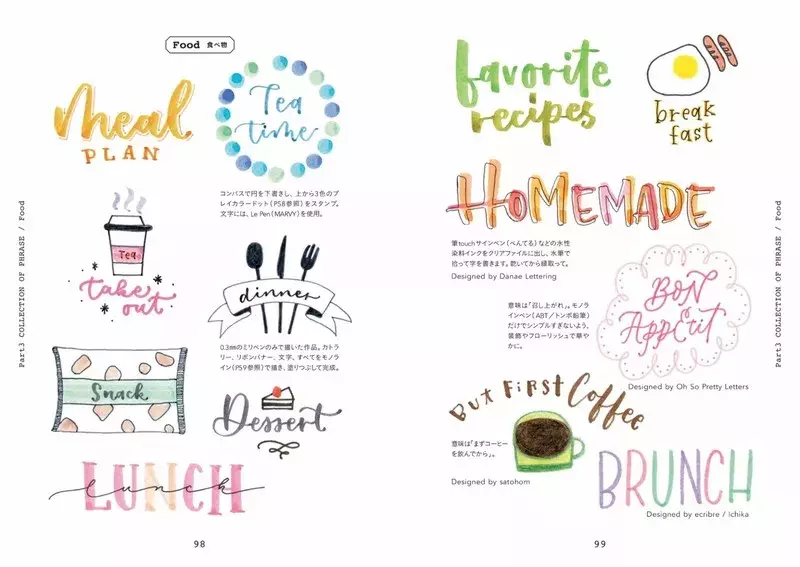 Food 食べ物
meal
PLAN
Tea
time
コンパスで円を下書きし、上から3色のプ
レイカラードット(P58参照)をスタンプ。
文字には、Le Pen(MARVY)を使用。
Tea
take
out
dinner
0.3㎜のミリペンのみで描いた作品。カトラ
リー、リボンバナー、文字、すべてをモノラ
イン(P59参照)で描き、塗りつぶして完成。
Snack
Dessert
LUNCH
lunch
Part3 COLLECTION OF PHRASE / Food
98
favorite
recipes
break
fast
HOMEMADE
筆touchサインペン(ぺんてる)などの水性
染料インクをクリアファイルに出し、水筆で
拾って字を書きます。乾いてから縁取って。
Designed by Danae Lettering
BON
APPEtit
意味は「召し上がれ」。モノラ
インペン(ABT/トンボ鉛筆)
だけでシンプルすぎないよう、
装飾やフローリッシュで華や
かに。
Designed by Oh So Pretty Letters
But FiRST Coffee
意味は「まずコーヒー
を飲んでから」。
Designed by satohom
BRUNCH
Designed by ecribre / Ichika
Part3 COLLECTION OF PHRASE / Food
99